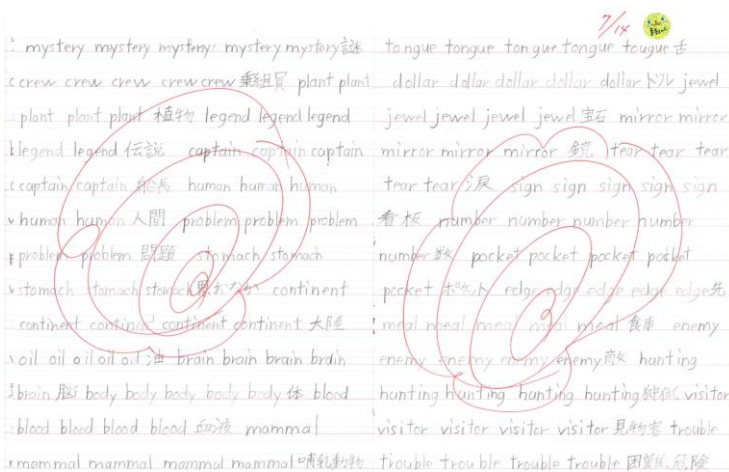 7/14
mystery mystery mystery mystery mystery 謎
crew crew crew crew crew 乗組員 plant plant
plant plant plant 植物 legend legend legend
legend legend 伝説 captain captain captain
captain captain 船長 human human human
human human 人間 problem problem problem
problem problem 問題 stomach stomach
stomach stomach stomach 胃おなか continent
continent continent continent continent 大陸
oil oil oil oil oil 油 brain brain brain brain
brain 脳 body body body body body 体 blood
blood blood blood blood 血液 mammal
mammal mammal mammal mammal 哺乳動物
tongue tongue tongue tongue tongue 舌
dollar dollar dollar dollar dollar ドル jewel
jewel jewel jewel jewel 宝石 mirror mirror
mirror mirror mirror 鏡 tear tear tear
tear tear 涙 sign sign sign sign sign
看板 number number number number
number 数 pocket pocket pocket pocket
pocket ポケット edge edge edge edge edge 先
meal meal meal meal meal 食事 enemy
enemy enemy enemy enemy 敵 hunting
hunting hunting hunting hunting 狩猟 visitor
visitor visitor visitor visitor 見物客 trouble
trouble trouble trouble trouble 困難 危険